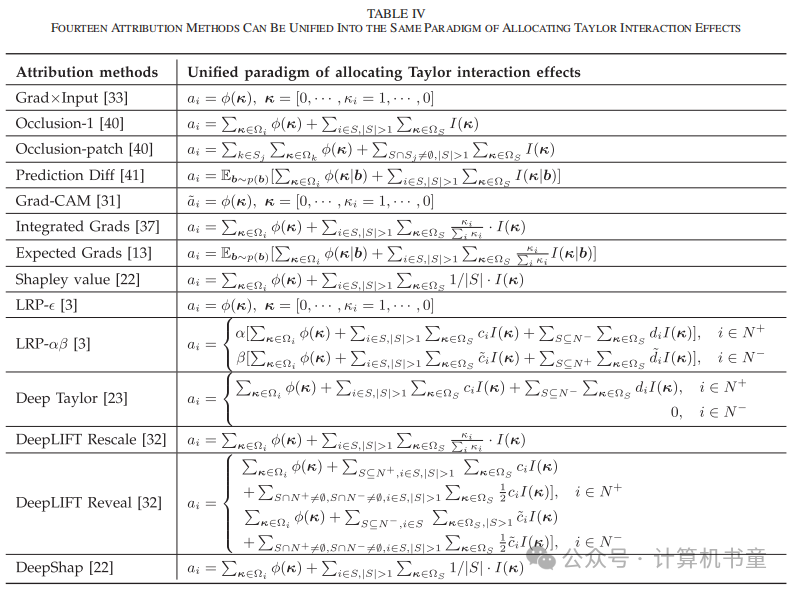 TABLE IV
FOURTEEN ATTRIBUTION METHODS CAN BE UNIFIED INTO THE SAME PARADIGM OF ALLOCATING TAYLOR INTERACTION EFFECTS
Attribution methods Unified paradigm of allocating Taylor interaction effects
Grad×Input [33] a_i = ϕ(κ), κ = [0, ⋯, κ_i = 1, ⋯, 0]
Occlusion-1 [40] a_i = ∑_{κ∈Ω_i} ϕ(κ) + ∑_{i∈S,|S|>1} ∑_{κ∈Ω_S} I(κ)
Occlusion-patch [40] a_i = ∑_{k∈S_j} ∑_{κ∈Ω_k} ϕ(κ) + ∑_{S∩S_j≠∅,|S|>1} ∑_{κ∈Ω_S} I(κ)
Prediction Diff [41] a_i = 𝔼_{b∼p(b)}[∑_{κ∈Ω_i} ϕ(κ|b) + ∑_{i∈S,|S|>1} ∑_{κ∈Ω_S} I(κ|b)]
Grad-CAM [31] ã_i = ϕ(κ), κ = [0, ⋯, κ_i = 1, ⋯, 0]
Integrated Grads [37] a_i = ∑_{κ∈Ω_i} ϕ(κ) + ∑_{i∈S,|S|>1} ∑_{κ∈Ω_S} κ_i/∑_i κ_i · I(κ)
Expected Grads [13] a_i = 𝔼_{b∼p(b)}[∑_{κ∈Ω_i} ϕ(κ|b) + ∑_{i∈S,|S|>1} ∑_{κ∈Ω_S} κ_i/∑_i κ_i I(κ|b)]
Shapley value [22] a_i = ∑_{κ∈Ω_i} ϕ(κ) + ∑_{i∈S,|S|>1} ∑_{κ∈Ω_S} 1/|S| · I(κ)
LRP-ϵ [3] a_i = ϕ(κ), κ = [0, ⋯, κ_i = 1, ⋯, 0]
LRP-αβ [3] a_i = { α[∑_{κ∈Ω_i} ϕ(κ) + ∑_{i∈S,|S|>1} ∑_{κ∈Ω_S} c_i I(κ) + ∑_{S⊆N^-} ∑_{κ∈Ω_S} d_i I(κ)], i ∈ N^+
β[∑_{κ∈Ω_i} ϕ(κ) + ∑_{i∈S,|S|>1} ∑_{κ∈Ω_S} c̃_i I(κ) + ∑_{S⊆N^+} ∑_{κ∈Ω_S} d̃_i I(κ)], i ∈ N^-
Deep Taylor [23] a_i = { ∑_{κ∈Ω_i} ϕ(κ) + ∑_{i∈S,|S|>1} ∑_{κ∈Ω_S} c_i I(κ) + ∑_{S⊆N^-} ∑_{κ∈Ω_S} d_i I(κ), i ∈ N^+
0, i ∈ N^-
DeepLIFT Rescale [32] a_i = ∑_{κ∈Ω_i} ϕ(κ) + ∑_{i∈S,|S|>1} ∑_{κ∈Ω_S} κ_i/∑_i κ_i · I(κ)
DeepLIFT Reveal [32] a_i = { ∑_{κ∈Ω_i} ϕ(κ) + ∑_{S⊆N^+,i∈S,|S|>1} ∑_{κ∈Ω_S} c_i I(κ)
+ ∑_{S∩N^+≠∅,S∩N^-≠∅,i∈S,|S|>1} ∑_{κ∈Ω_S} 1/2 c_i I(κ)], i ∈ N^+
∑_{κ∈Ω_i} ϕ(κ) + ∑_{S⊆N^-,i∈S} ∑_{κ∈Ω_S,|S>1} c̃_i I(κ)
+ ∑_{S∩N^+≠∅,S∩N^-≠∅,i∈S,|S|>1} ∑_{κ∈Ω_S} 1/2 c̃_i I(κ)], i ∈ N^-
DeepShap [22] a_i = ∑_{κ∈Ω_i} ϕ(κ) + ∑_{i∈S,|S|>1} ∑_{κ∈Ω_S} 1/|S| · I(κ)
公众号 · 计算机书童